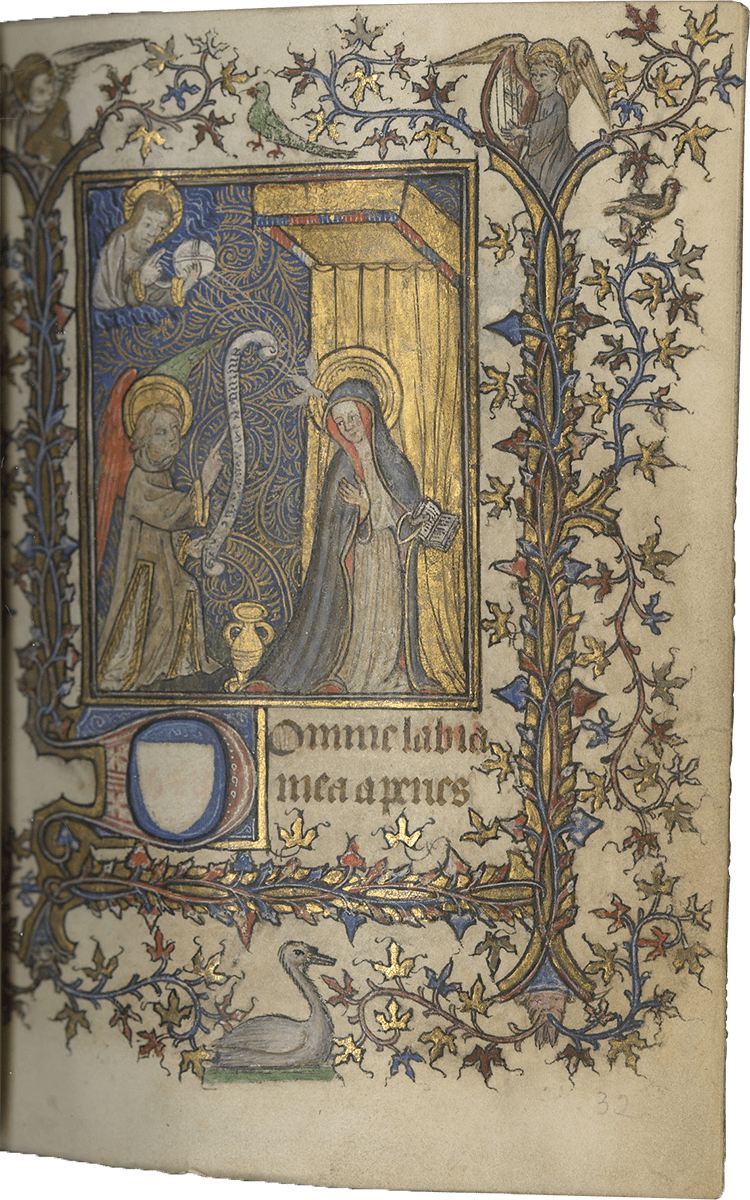 Domine labia
mea aperies
32